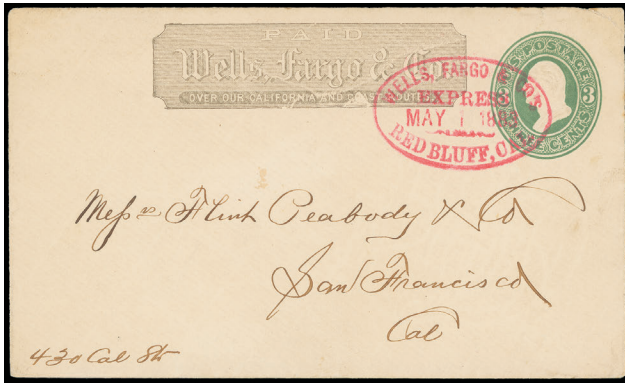 PAID
Wells, Fargo & Co.
OVER OUR CALIFORNIA AND COAST ROUTES
WELLS, FARGO & CO'S
EXPRESS
MAY 1 1883
RED BLUFF, CAL.
U.S. POSTAGE
3
THREE CENTS
Messrs Flint Peabody & Co
San Francisco
Cal
430 Cal Str